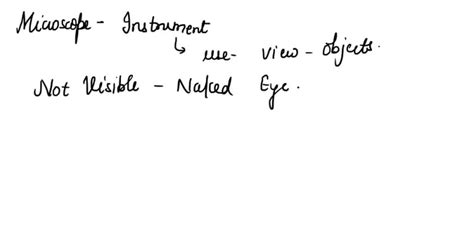 Microscope - Instrument
↳ use - view - objects.
Not Visible - Naked Eye.